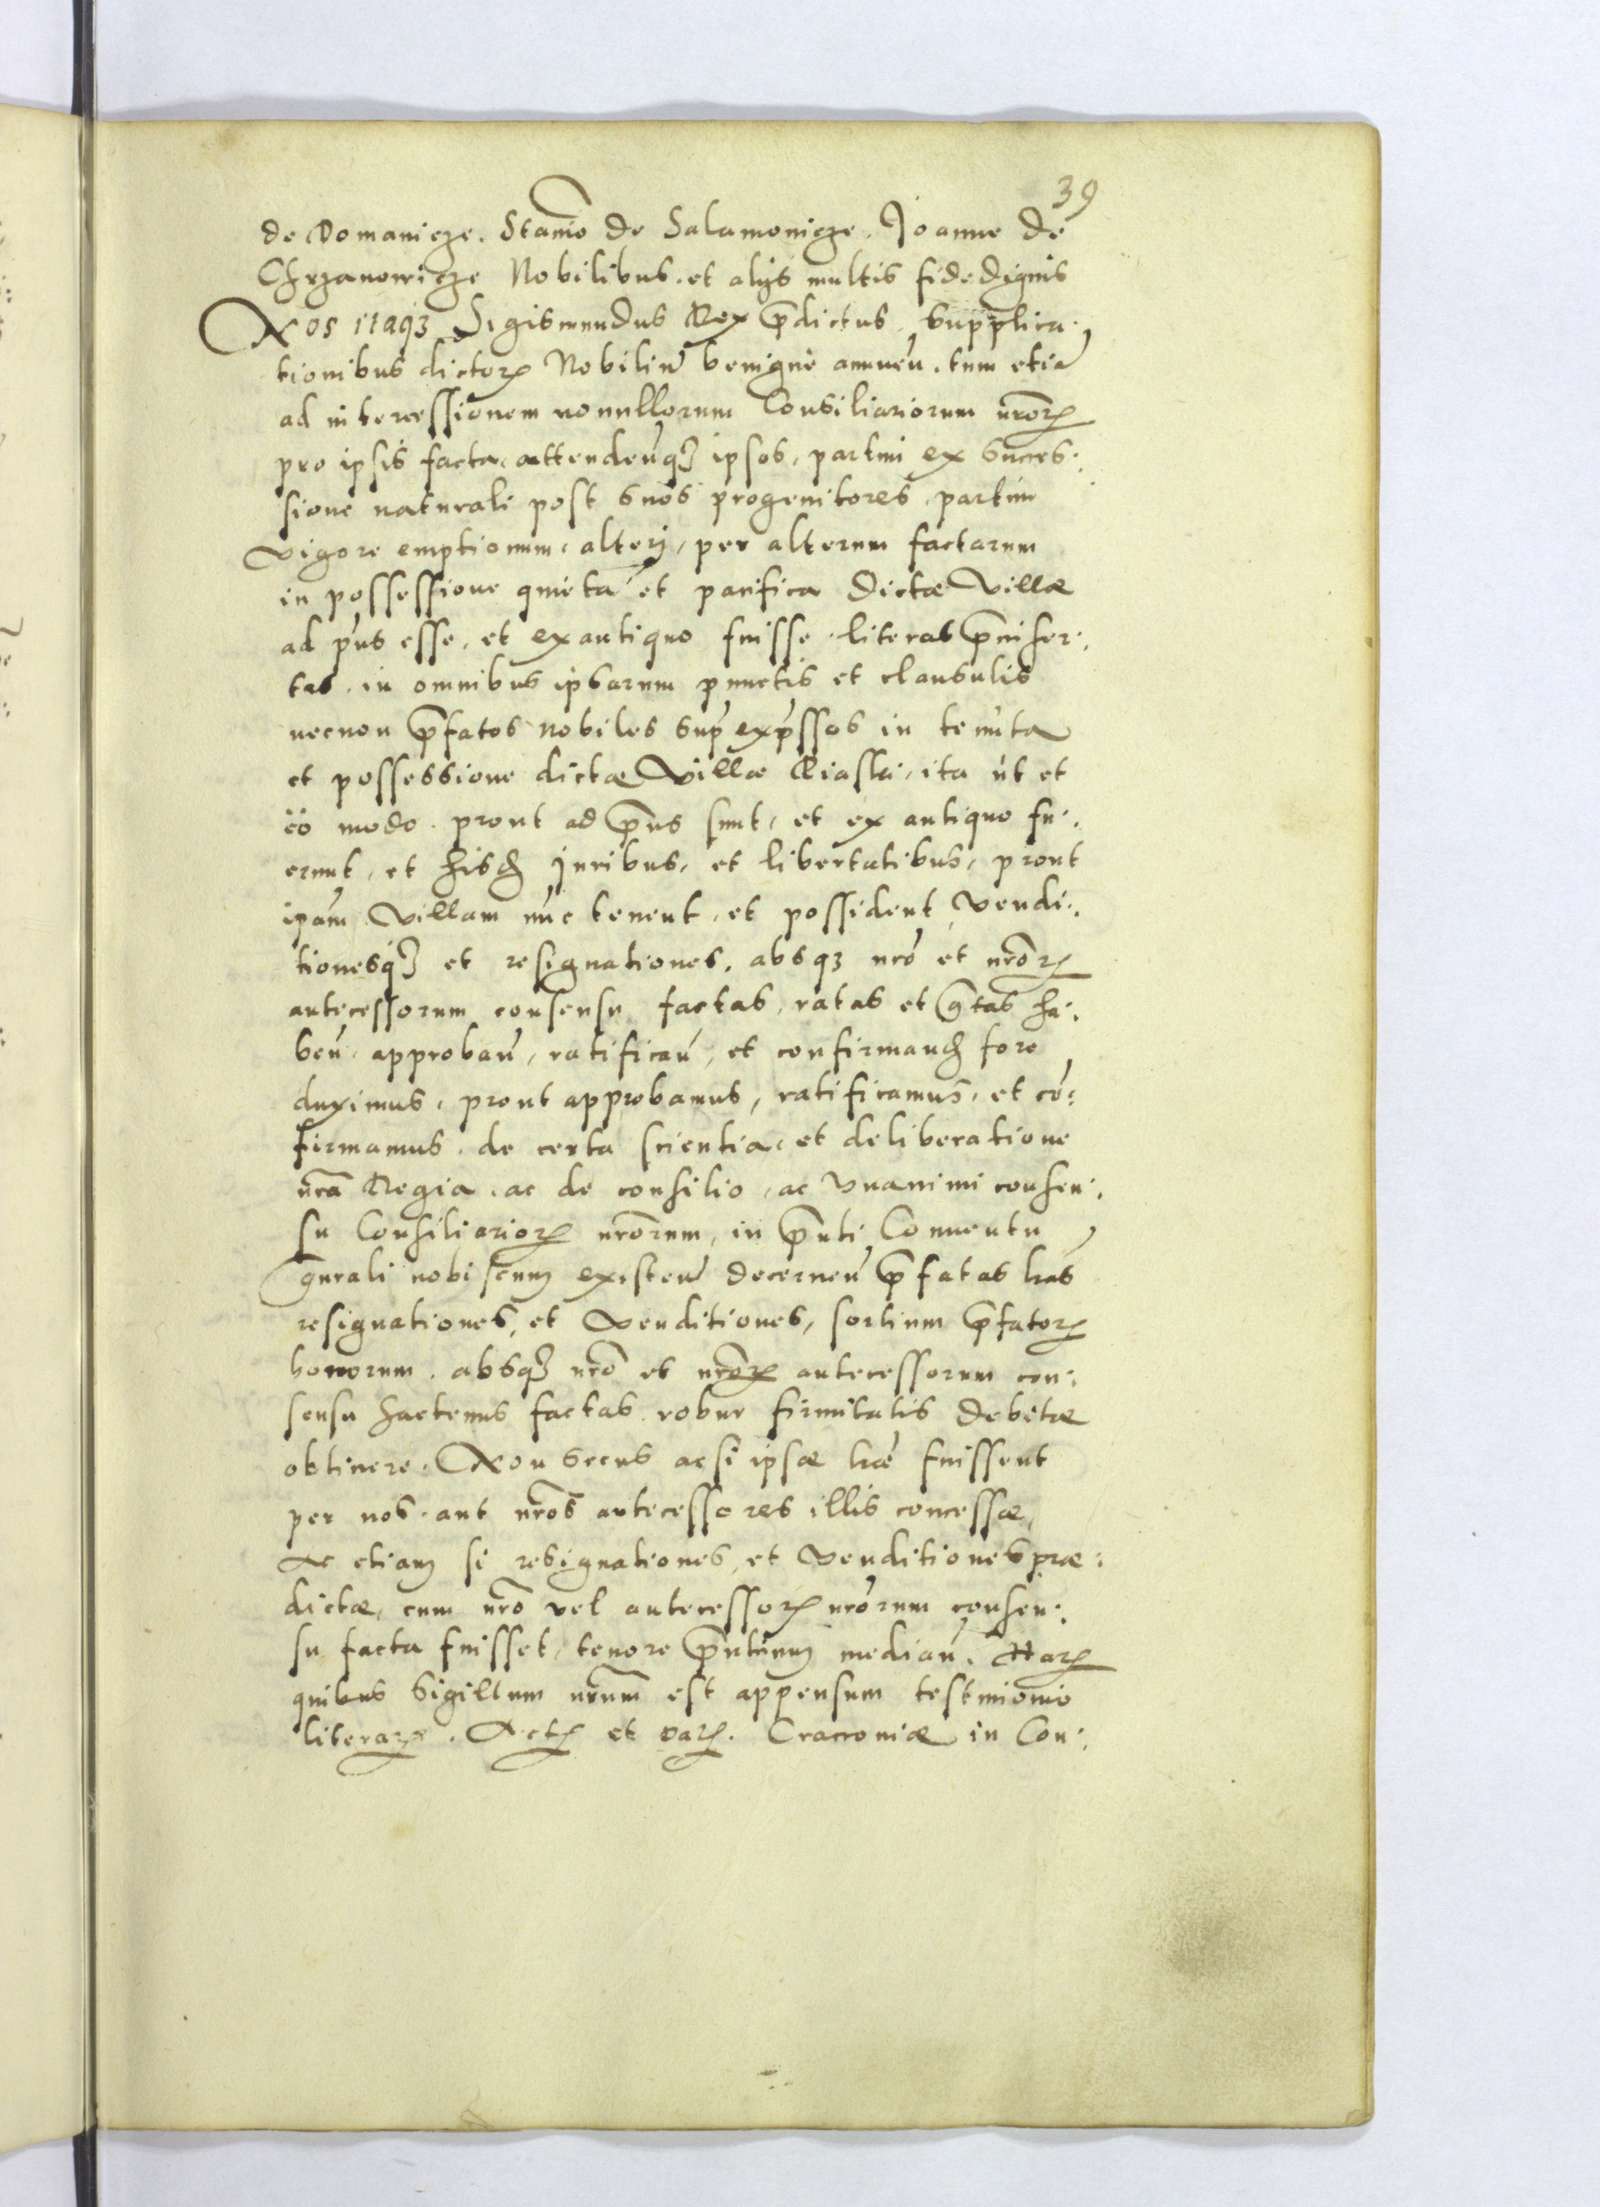 39
de Domanicze. Stanio de Salamonicze. Joanne de
Chrzanowicze Nobilibus. et alijs multis fidedignis
Nos itaqz Sigismundus Rex p̄dictus, supplica:
tionibus dictorꝝ Nobiliū benigne annueñ. tum etiā
ad intercessionem nonnullorum Consiliariorum nrōrꝝ
pro ipsis facta, attendeñqz ipsos, partim ex succes:
sione naturali post suos progenitores, partim
vigore emptionum, alterj, per alterum factarum
in possessione quieta et pacifica dictæ Villæ
ad p̄ns esse, et ex antiquo fuisse. literas p̄inser:
tas. in omnibus ipsarum punctis et clausulis
necnon p̄fatos nobiles sup̄ exp̄ssos in tenuta
et possessione dictæ Villæ Riaski, ita ut et
eo modo. prout ad p̄ns sunt, et ex antiquo fu:
erunt, et hisdꝫ juribus, et libertatibus, prout
ipām Villam nūc tenent, et possident, Vendi:
tionesqz et resignationes, absqz nrō et nrōrꝝ
antecessorum consensu factas, ratas et g̃tas ha:
beñ, approbañ, ratificañ, et confirmandꝫ fore
duximus, prout approbamus, ratificamus, et cō:
firmamus. de certa scientia, et deliberatione
nrā Regia, ac de consilio, ac Vnanimi consen:
su Consiliariorꝝ nrōrum, in p̄nti Conuentu
gnrāli nobiscum existeñ decerneñ p̄fatas lrās
resignationes, et Venditiones, sortium p̄fatorꝝ
bonorum. absqz nrō et nrōrꝝ antecessorum con:
sensu hactenus factas robur firmitatis debitæ
obtinere. Non secus acsi ipsæ lrǣ fuissent
per nos. aut nrōs antecessores illis concessæ,
Ac etiam si resignationes, et Venditiones præ:
dictæ, cum nrō vel antecessorꝝ nrōrum consen:
su facta fuisset, tenore p̄ntium mediañ. Harꝝ
quibus Sigillum nrūm est appensum testimonio
literarꝝ. Actꝫ et Datꝫ. Cracouiæ in Con: